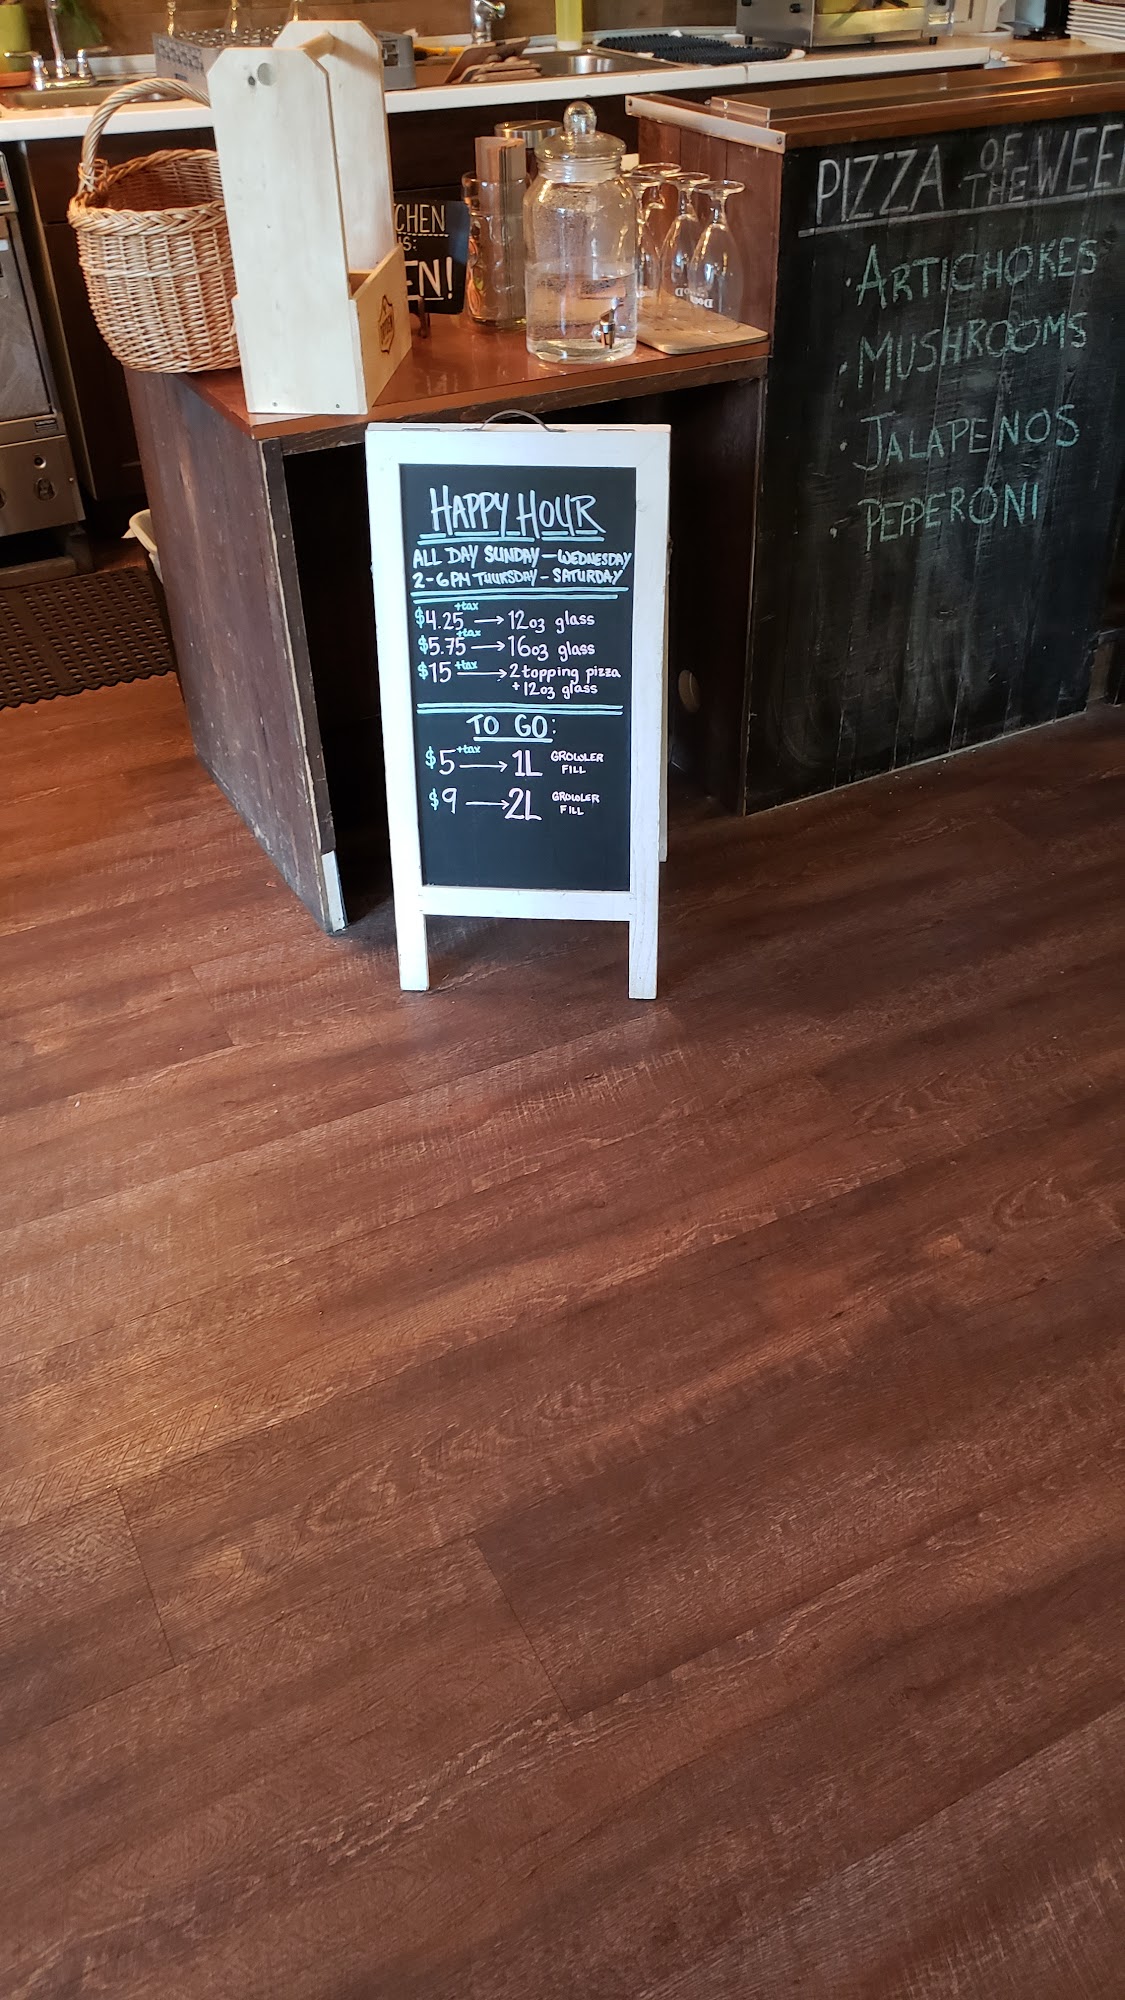 CHEN
EN!
PIZZA OF THE WEE
· ARTICHOKES
· MUSHROOMS
· JALAPEÑOS
· PEPPERONI
HAPPY HOUR
ALL DAY SUNDAY — WEDNESDAY
2-6PM THURSDAY - SATURDAY
$4.25 +tax → 12oz glass
$5.75 +tax → 16oz glass
$15 +tax → 2 topping pizza
+ 12oz glass
TO GO:
$5 +tax → 1L GROWLER FILL
$9 → 2L GROWLER FILL